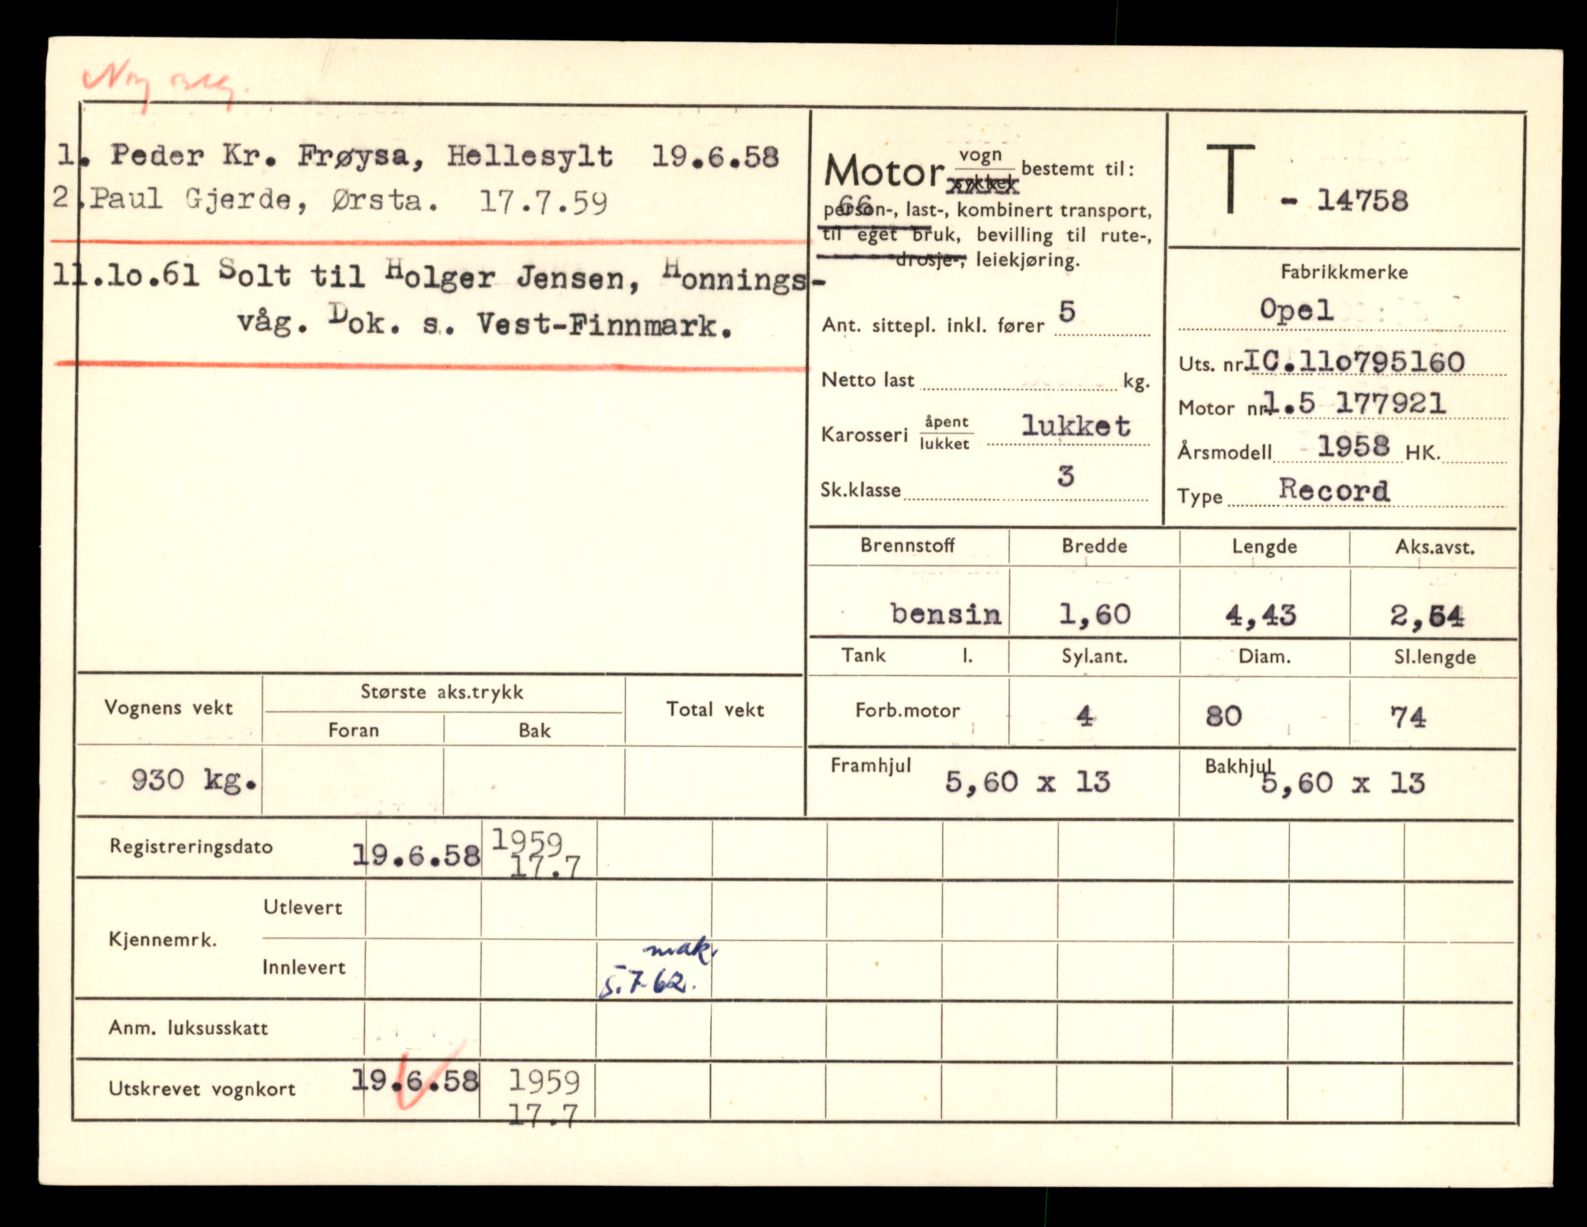 Ny reg.
1. Peder Kr. Frøysa, Hellesylt 19.6.58
2.Paul Gjerde, Ørsta. 17.7.59
11.1o.61 Solt til Holger Jensen, Honnings-
våg. Dok. s. Vest-Finnmark.
Motor vogn bestemt til:
sykkel
66
person-, last-, kombinert transport,
til eget bruk, bevilling til rute-,
drosje-, leiekjøring.
Ant. sittepl. inkl. fører 5
Netto last kg.
Karosseri åpent lukket lukket
Sk.klasse 3
T - 14758
Fabrikkmerke
Opel
Uts. nr. IC.11o795160
Motor nr. 1.5 177921
Årsmodell 1958 HK.
Type Record
Brennstoff Bredde Lengde Aks.avst.
bensin 1,60 4,43 2,54
Tank l. Syl.ant. Diam. Sl.lengde
Forb.motor 4 80 74
Framhjul 5,60 x 13 Bakhjul 5,60 x 13
Vognens vekt Største aks.trykk Total vekt
Foran Bak
930 kg.
Registreringsdato 19.6.58 1959
17.7
Kjennemrk. Utlevert
Innlevert mak.
5.7-62.
Anm. luksusskatt
Utskrevet vognkort 19.6.58 1959
17.7